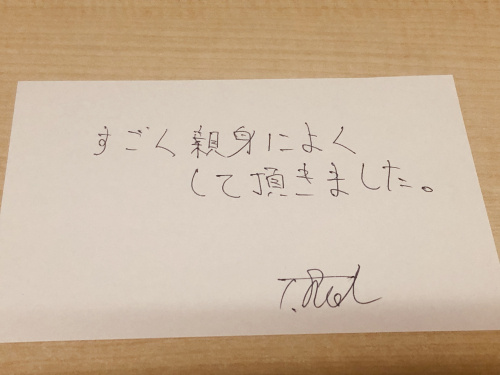 すごく親身によく
して頂きました。